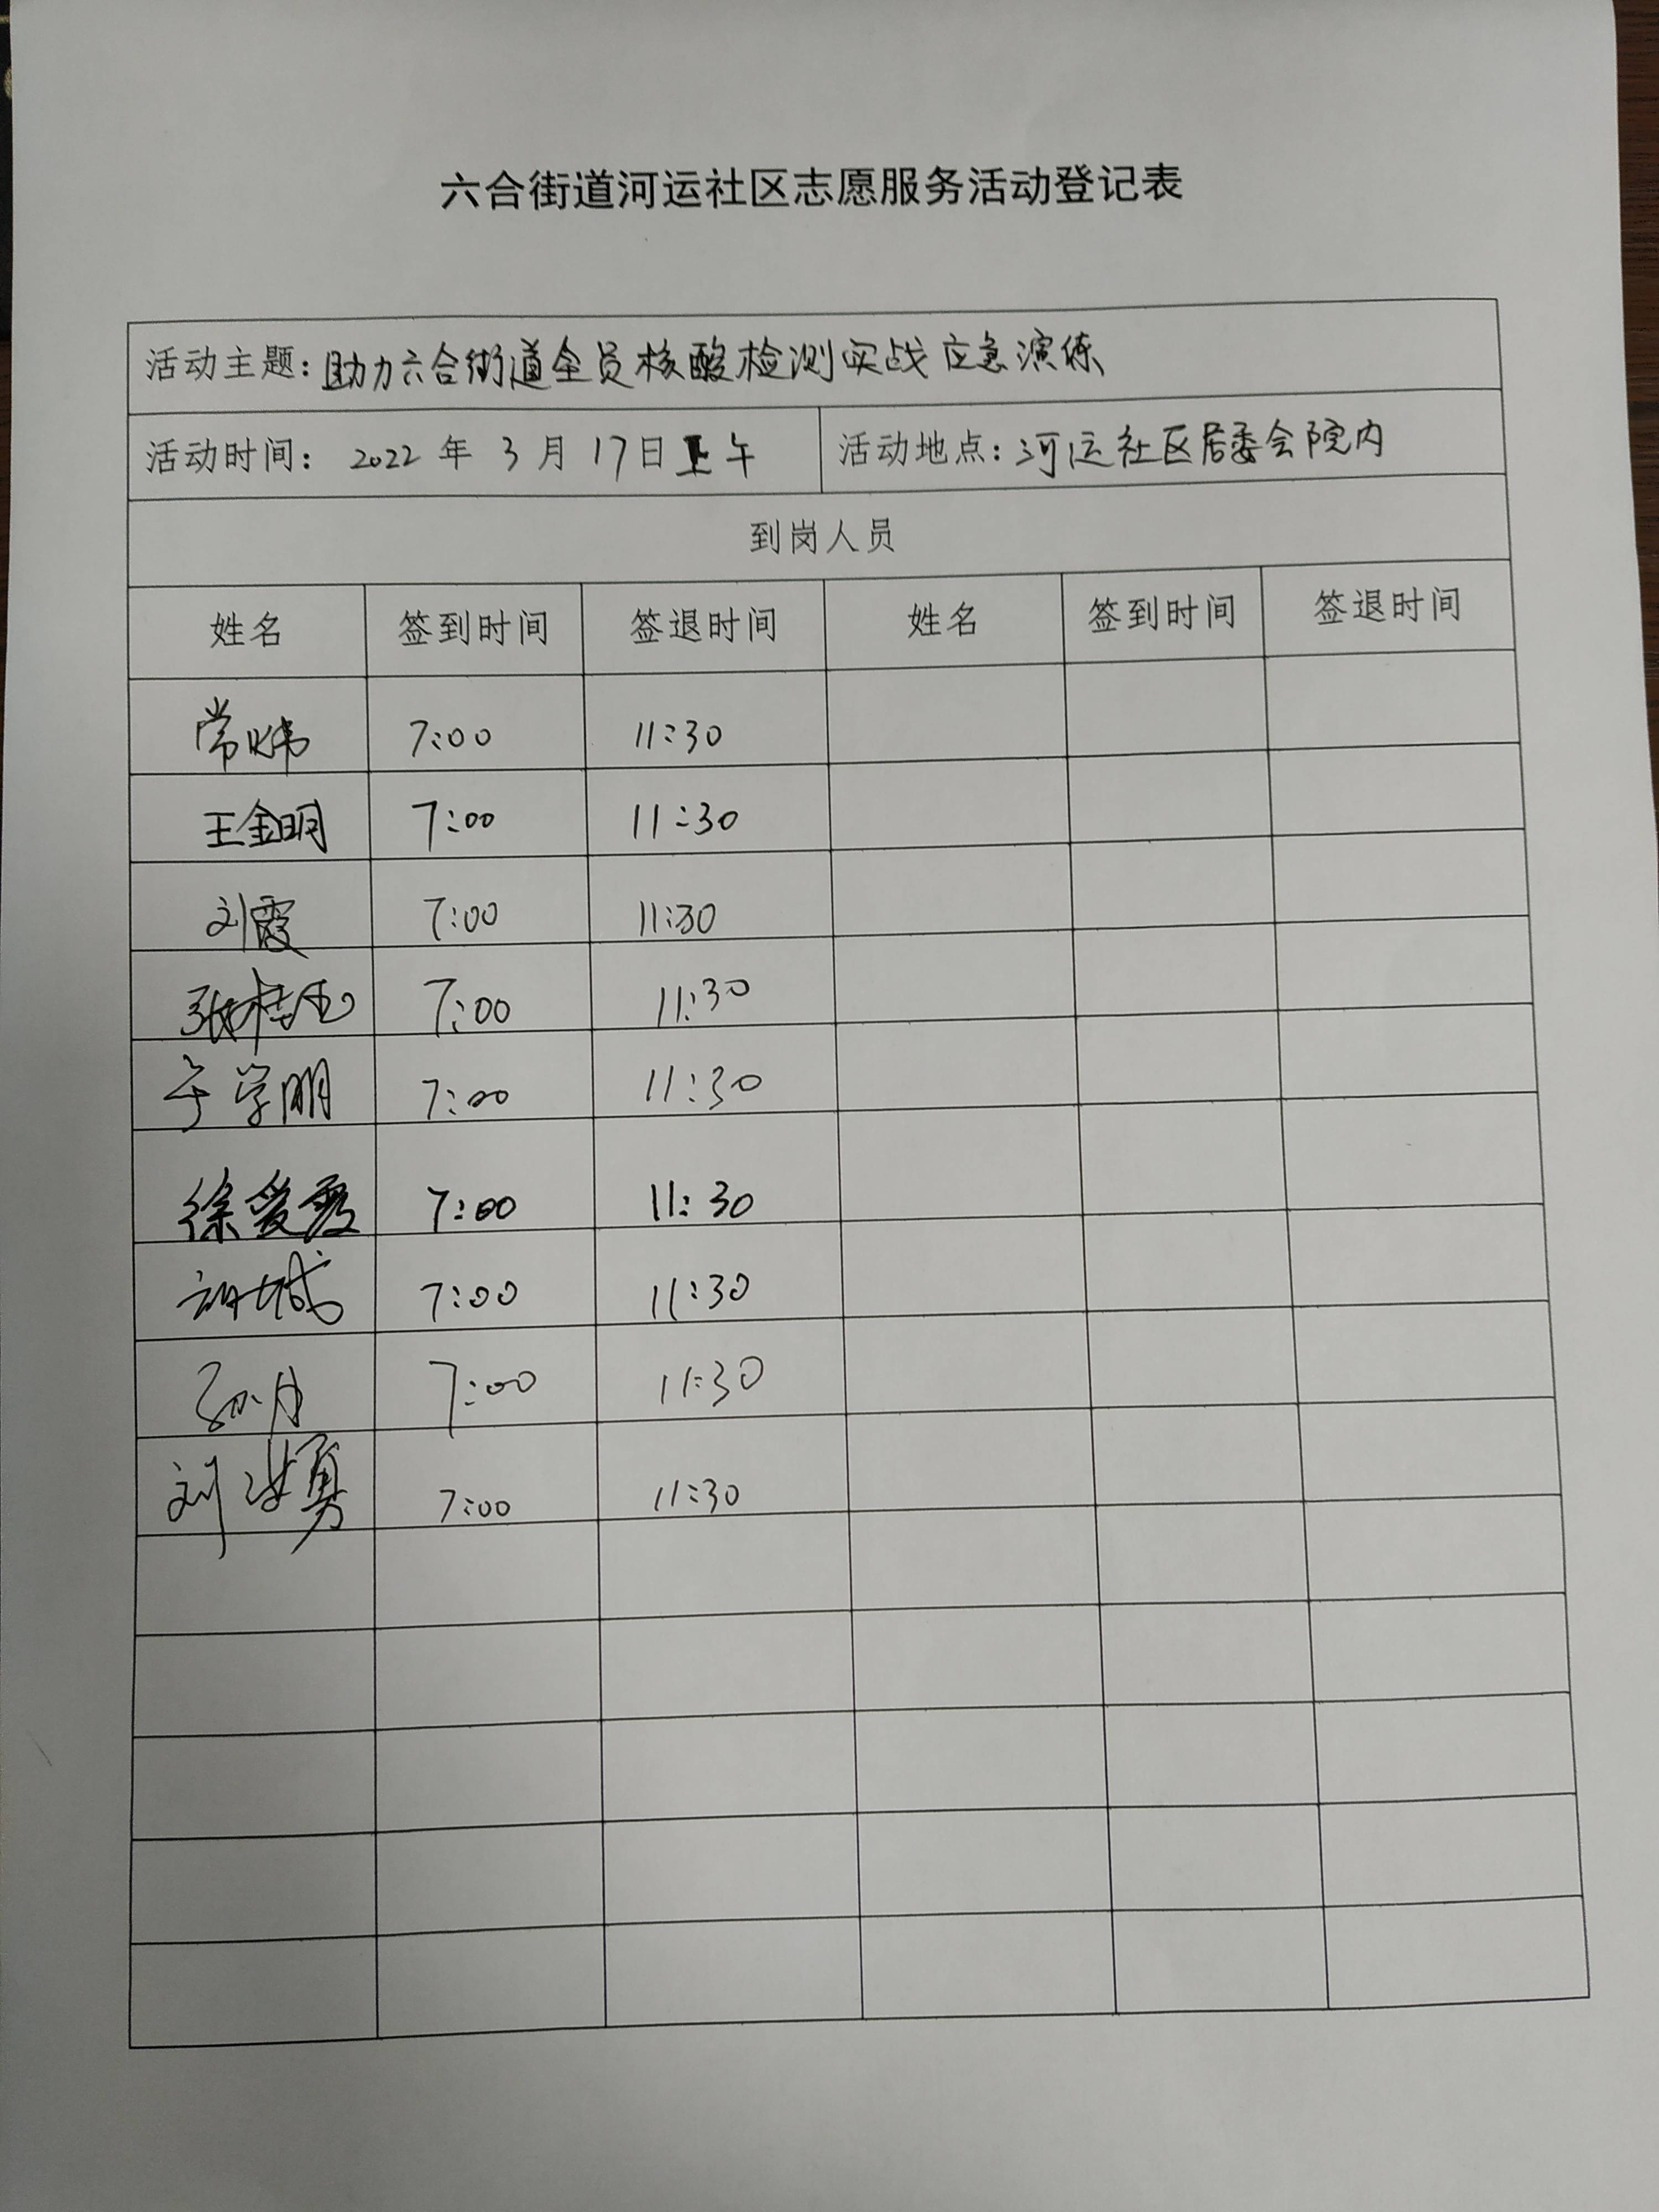 六合街道河运社区志愿服务活动登记表
活动主题：助力六合街道全员核酸检测实战应急演练
活动时间： 2022 年 3 月 17日上午 活动地点：河运社区居委会院内
到岗人员
姓名 签到时间 签退时间 姓名 签到时间 签退时间
常炜 7:00 11:30
王金明 7:00 11:30
刘霞 7:00 11:30
张桂 7:00 11:30
学明 7:00 11:30
徐爱霞 7:00 11:30
7:00 11:30
孙月 7:00 11:30
刘洪勇 7:00 11:30